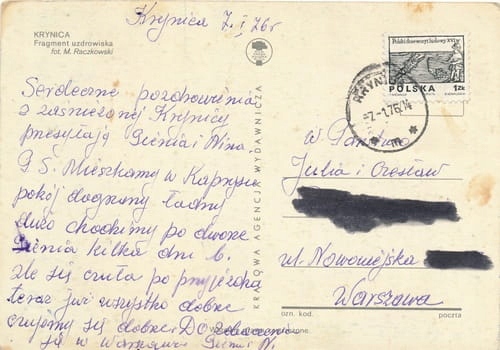 Krynica 7.I.76r
KRYNICA
Fragment uzdrowiska
fot. M. Raczkowski
Serdeczne pozdrowienia
z zaśnieżonej Krynicy
przesyłają Gienia i Nina.
P.S. Mieszkamy w Kaprysie
pokój dogrzany ładny
dużo chodzimy po dworze
Gienia kilka dni b.
źle się czuła po przyjeździe
teraz już wszystko dobrze
czujemy się dobrze. DO zobaczenia
się w Warszawie Gieni N.
KRAJOWA AGENCJA WYDAWNICZA
Polski drzeworyt ludowy XVI w.
POLSKA 1ZŁ
KRYNI
-7.-1.76
W Państwo
Julia i Czesław
ul. Nowowiejska
Warszawa
ozn. kod. poczta